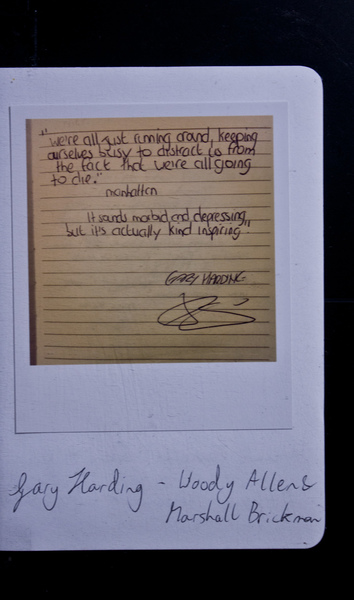 "We're all just running around, keeping
ourselves busy to distract us from
the fact that we're all going
to die."
manhattan
It sounds morbid and depressing,
but it's actually kind inspiring"
GARY HARDING
Gary Harding - Woody Allen &
Marshall Brickman